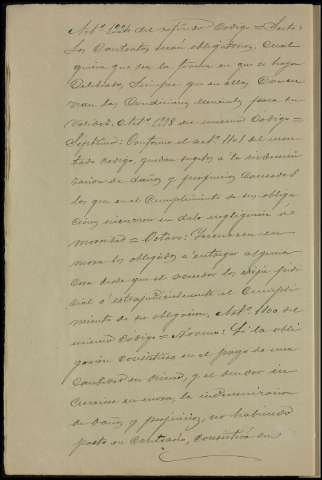 Artº 1224 del referido Codigo = Sesto:
Los Contratos serán obligatorios, Cual
quiera que sea la forma en que se hayan
Celebrado, Siempre que en ellos Concu
rran las Condiciones esenciales para su
validez. Artº 1278 del mismo Codigo =
Septimo: Conforme el artº 1101 del men
tado Codigo, quedan sujetos a la indemni
zacion de daños y perjuicios causados
los que en el Cumplimiento de sus obliga
ciones incurren en dolo negligencia ó
morosidad = Octavo: Incurren en
mora los obligados á entregar alguna
cosa desde que el acreedor les exija judi
cial ó extrajudicialmente el Cumpli
miento de su obligacion, Artº 1100 del
mismo Codigo = Noveno: Si la obli
gacion Consistiese en el pago de una
Cantidad en dinero, y el deudor in
curriere en mora, la indemnizacion
de daños y perjuicios, no habiendo
pacto en Contrario, Consistirá en